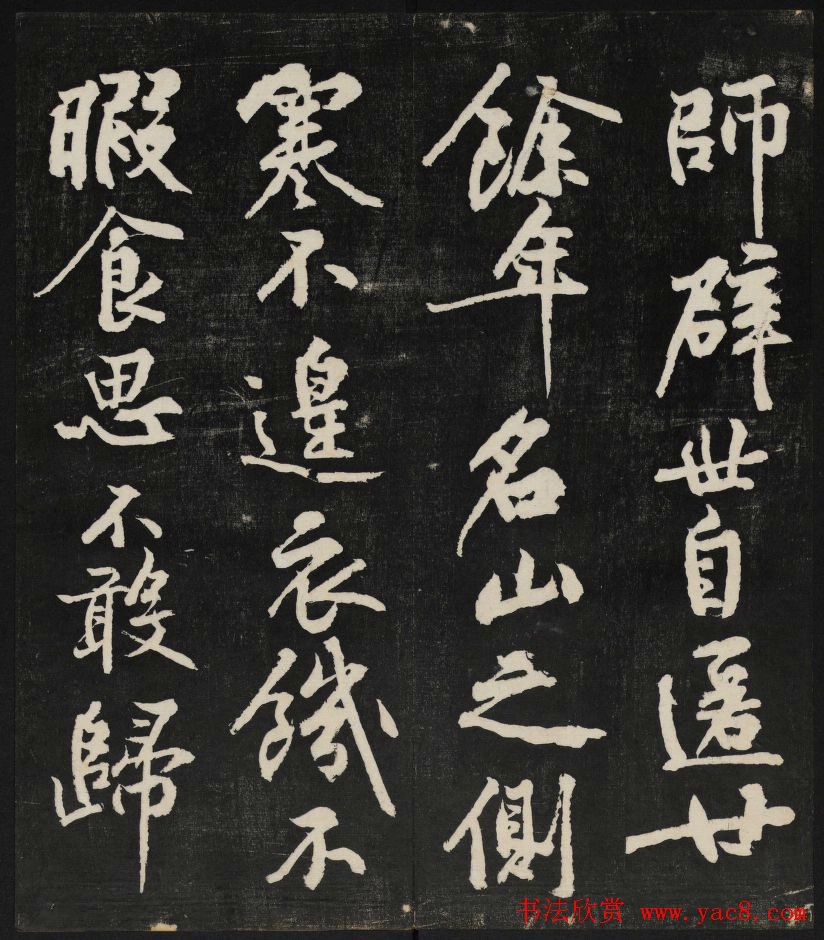 師辟世自匿廿
餘年名山之側
寒不遑衣饑不
暇食思不敢歸
书法欣赏 www.yac8.com